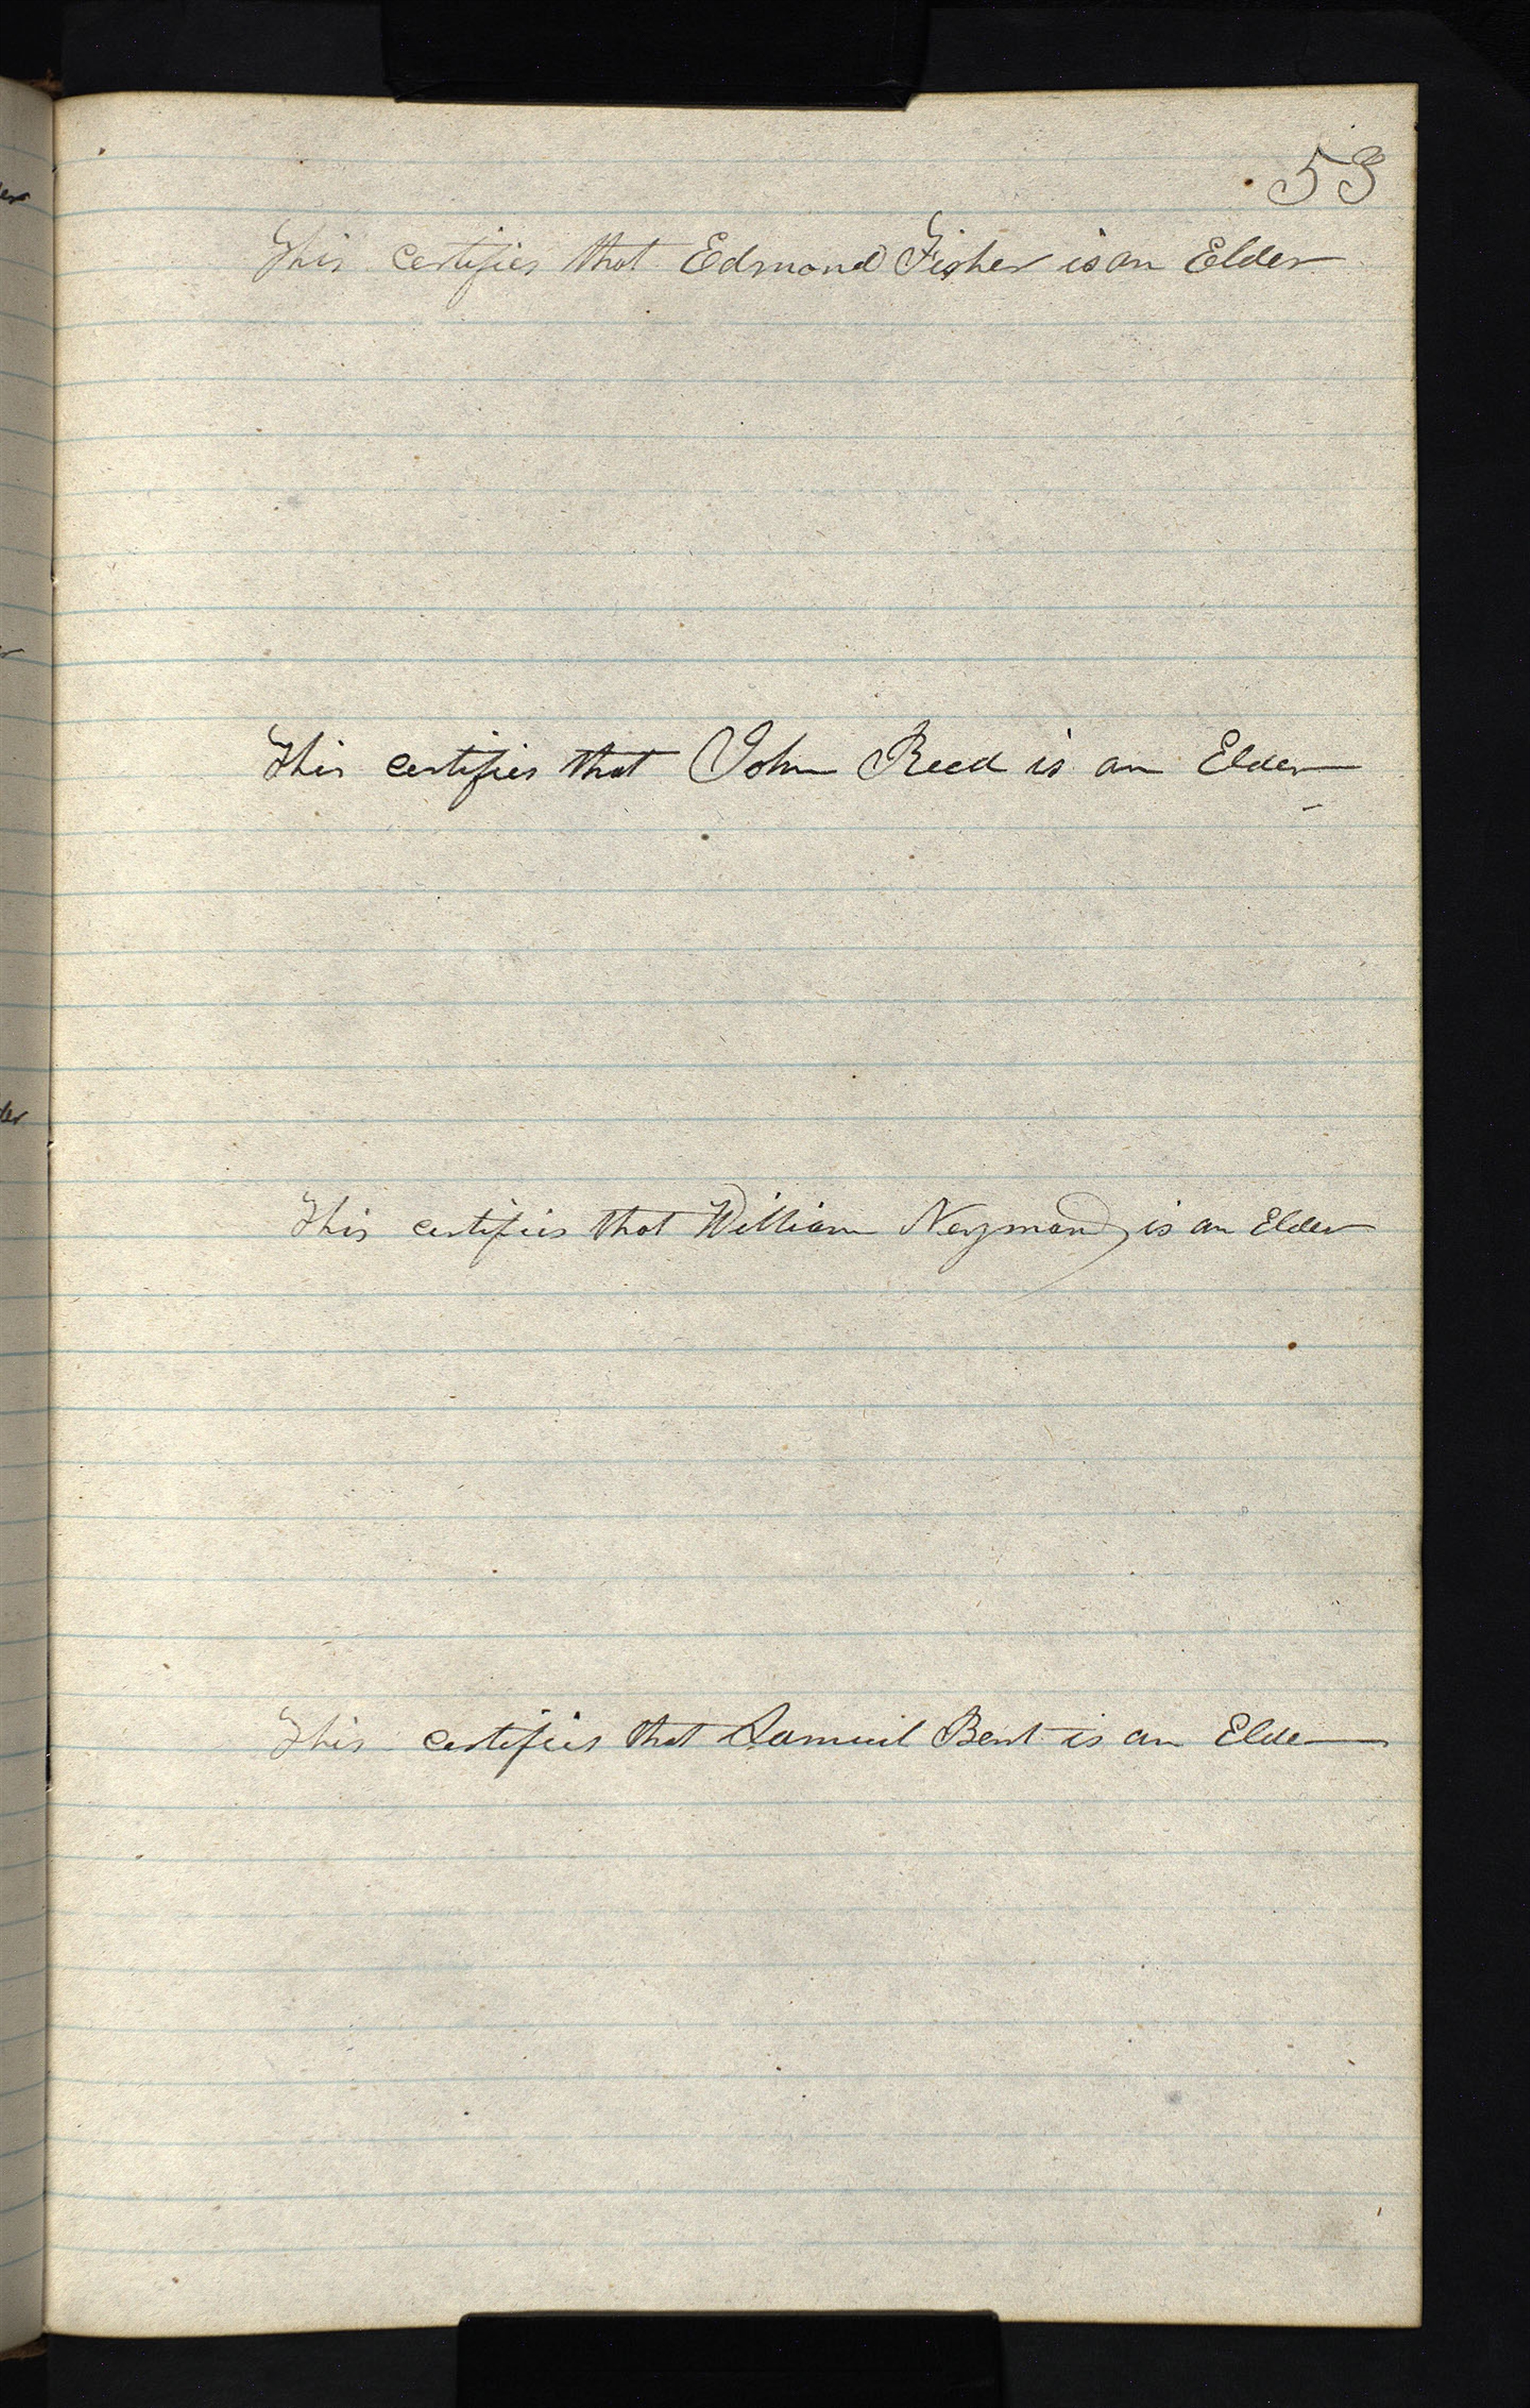 53
This certifies that Edmond Fisher is an Elder
This certifies that John Reed is an Elder
This certifies that William Neyman is an Elder
This certifies that Samuel Bent is an Elder